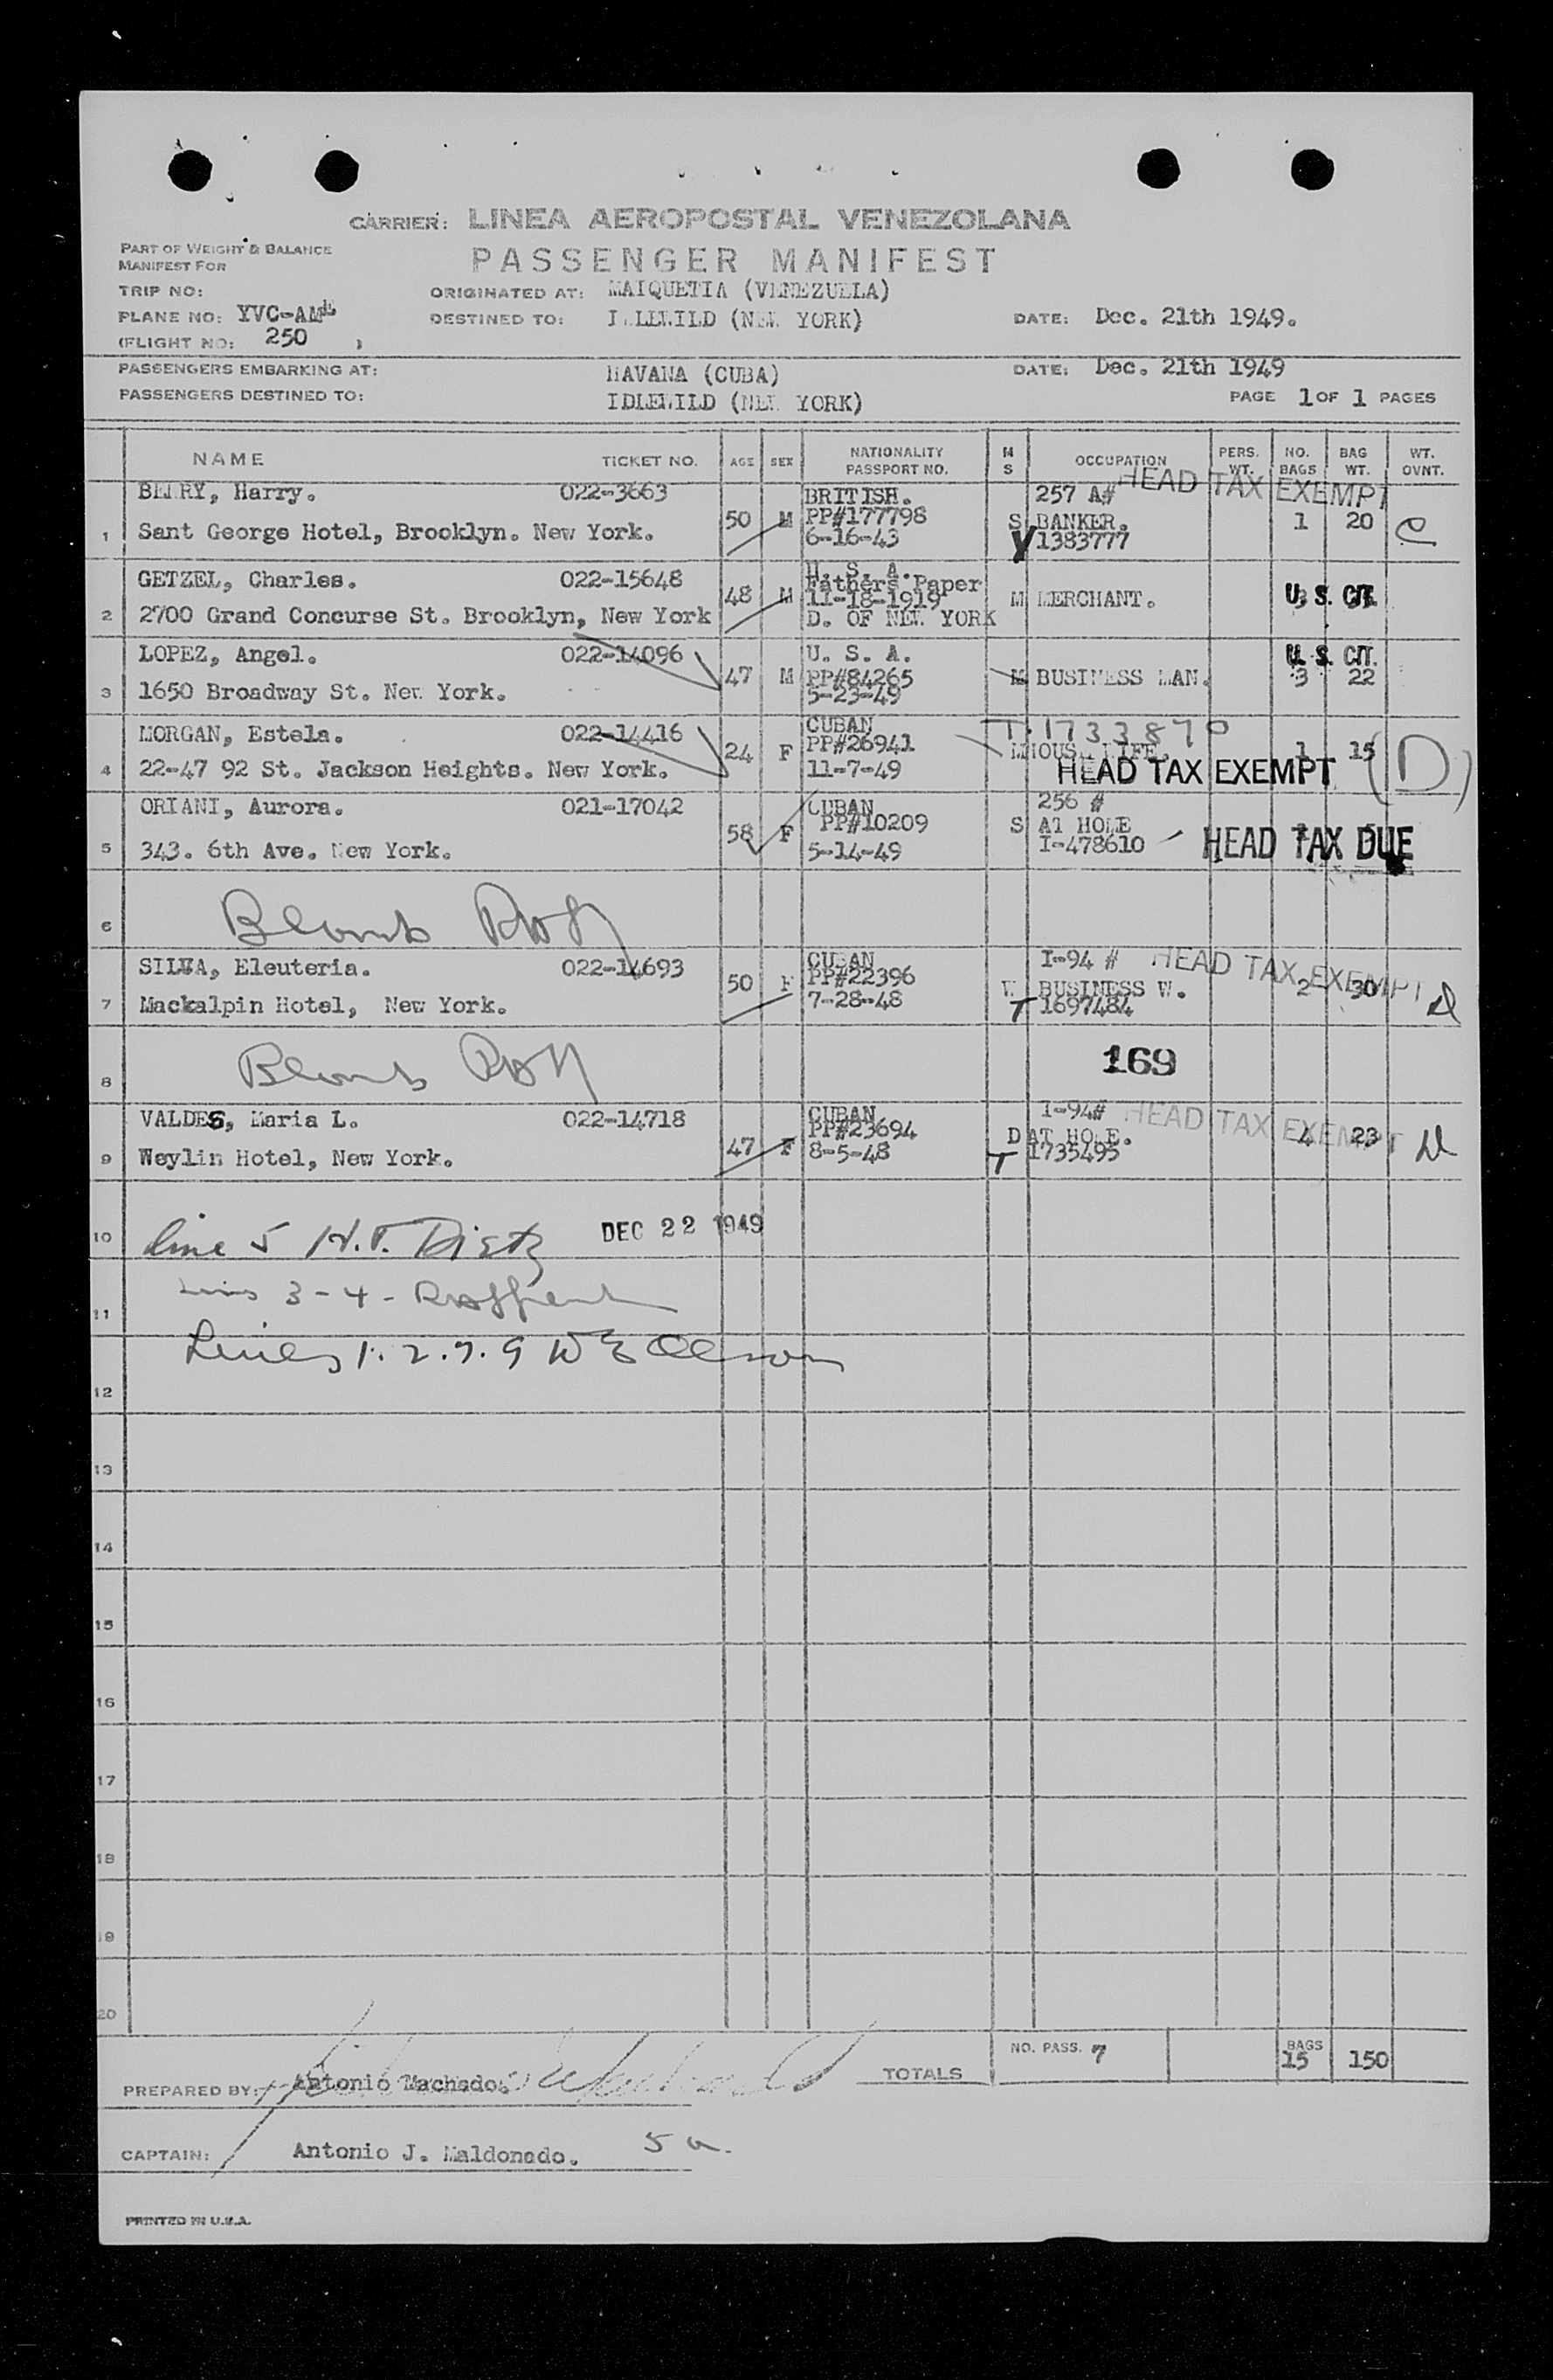 CARRIER: LINEA AEROPOSTAL VENEZOLANA
PART OF WEIGHT & BALANCE
MANIFEST FOR
PASSENGER MANIFEST
TRIP NO:
ORIGINATED AT: MAIQUETIA (VENEZUELA)
PLANE NO: YVC-AM
DESTINED TO: IDLEWILD (NEW YORK)
DATE: Dec. 21th 1949.
(FLIGHT NO: 250 )
PASSENGERS EMBARKING AT: HAVANA (CUBA)
DATE: Dec. 21th 1949
PASSENGERS DESTINED TO: IDLEWILD (NEW YORK)
PAGE 1 OF 1 PAGES
NAME TICKET NO. AGE SEX NATIONALITY PASSPORT NO. M S OCCUPATION PERS. WT. NO. BAGS BAG WT. WT. OVNT.
BERRY, Harry. 022-3663 BRITISH. 257 A# HEAD TAX EXEMPT
50 M PP#177798 S BANKER. 1 20 C
1 Sant George Hotel, Brooklyn. New York. 6-16-43 V 1383777
GETZEL, Charles. 022-15648 U. S. A.
Fathers Paper
48 M 11-18-1919 M MERCHANT. U. S. CIT.
2 2700 Grand Concurse St. Brooklyn, New York D. OF NEW YORK
LOPEZ, Angel. 022-14096 U. S. A. U. S. CIT.
47 M PP#84265 M BUSINESS MAN. 3 22
3 1650 Broadway St. New York. 5-23-49
MORGAN, Estela. 022-14416 CUBAN T.1733870
24 F PP#26941 M HOUSE WIFE. 1 15 (D)
4 22-47 92 St. Jackson Heights. New York. 11-7-49 HEAD TAX EXEMPT
ORIANI, Aurora. 021-17042 CUBAN 256 #
58 F PP#10209 S AT HOME
5 343. 6th Ave. New York. 5-14-49 I-478610 HEAD TAX DUE
6
SILVA, Eleuteria. 022-14693 CUBAN I-94 # HEAD TAX EXEMPT
50 F PP#22396 W BUSINESS W. 2 30
7 Mackalpin Hotel, New York. 7-28-48 T 1697484
8 169
VALDES, Maria L. 022-14718 CUBAN I-94# HEAD TAX EXEMPT
47 F PP#23694 D AT HOME. 4 23
9 Weylin Hotel, New York. 8-5-48 T 1735495
10 line 5 H.T. Dietz DEC 22 1949
11 Lines 3-4-
Lines 1.2.7.9 W E
12
13
14
15
16
17
18
19
20
NO. PASS. 7 BAGS
TOTALS 15 150
PREPARED BY: Antonio Machado.
CAPTAIN: Antonio J. Maldonado.
PRINTED IN U.S.A.